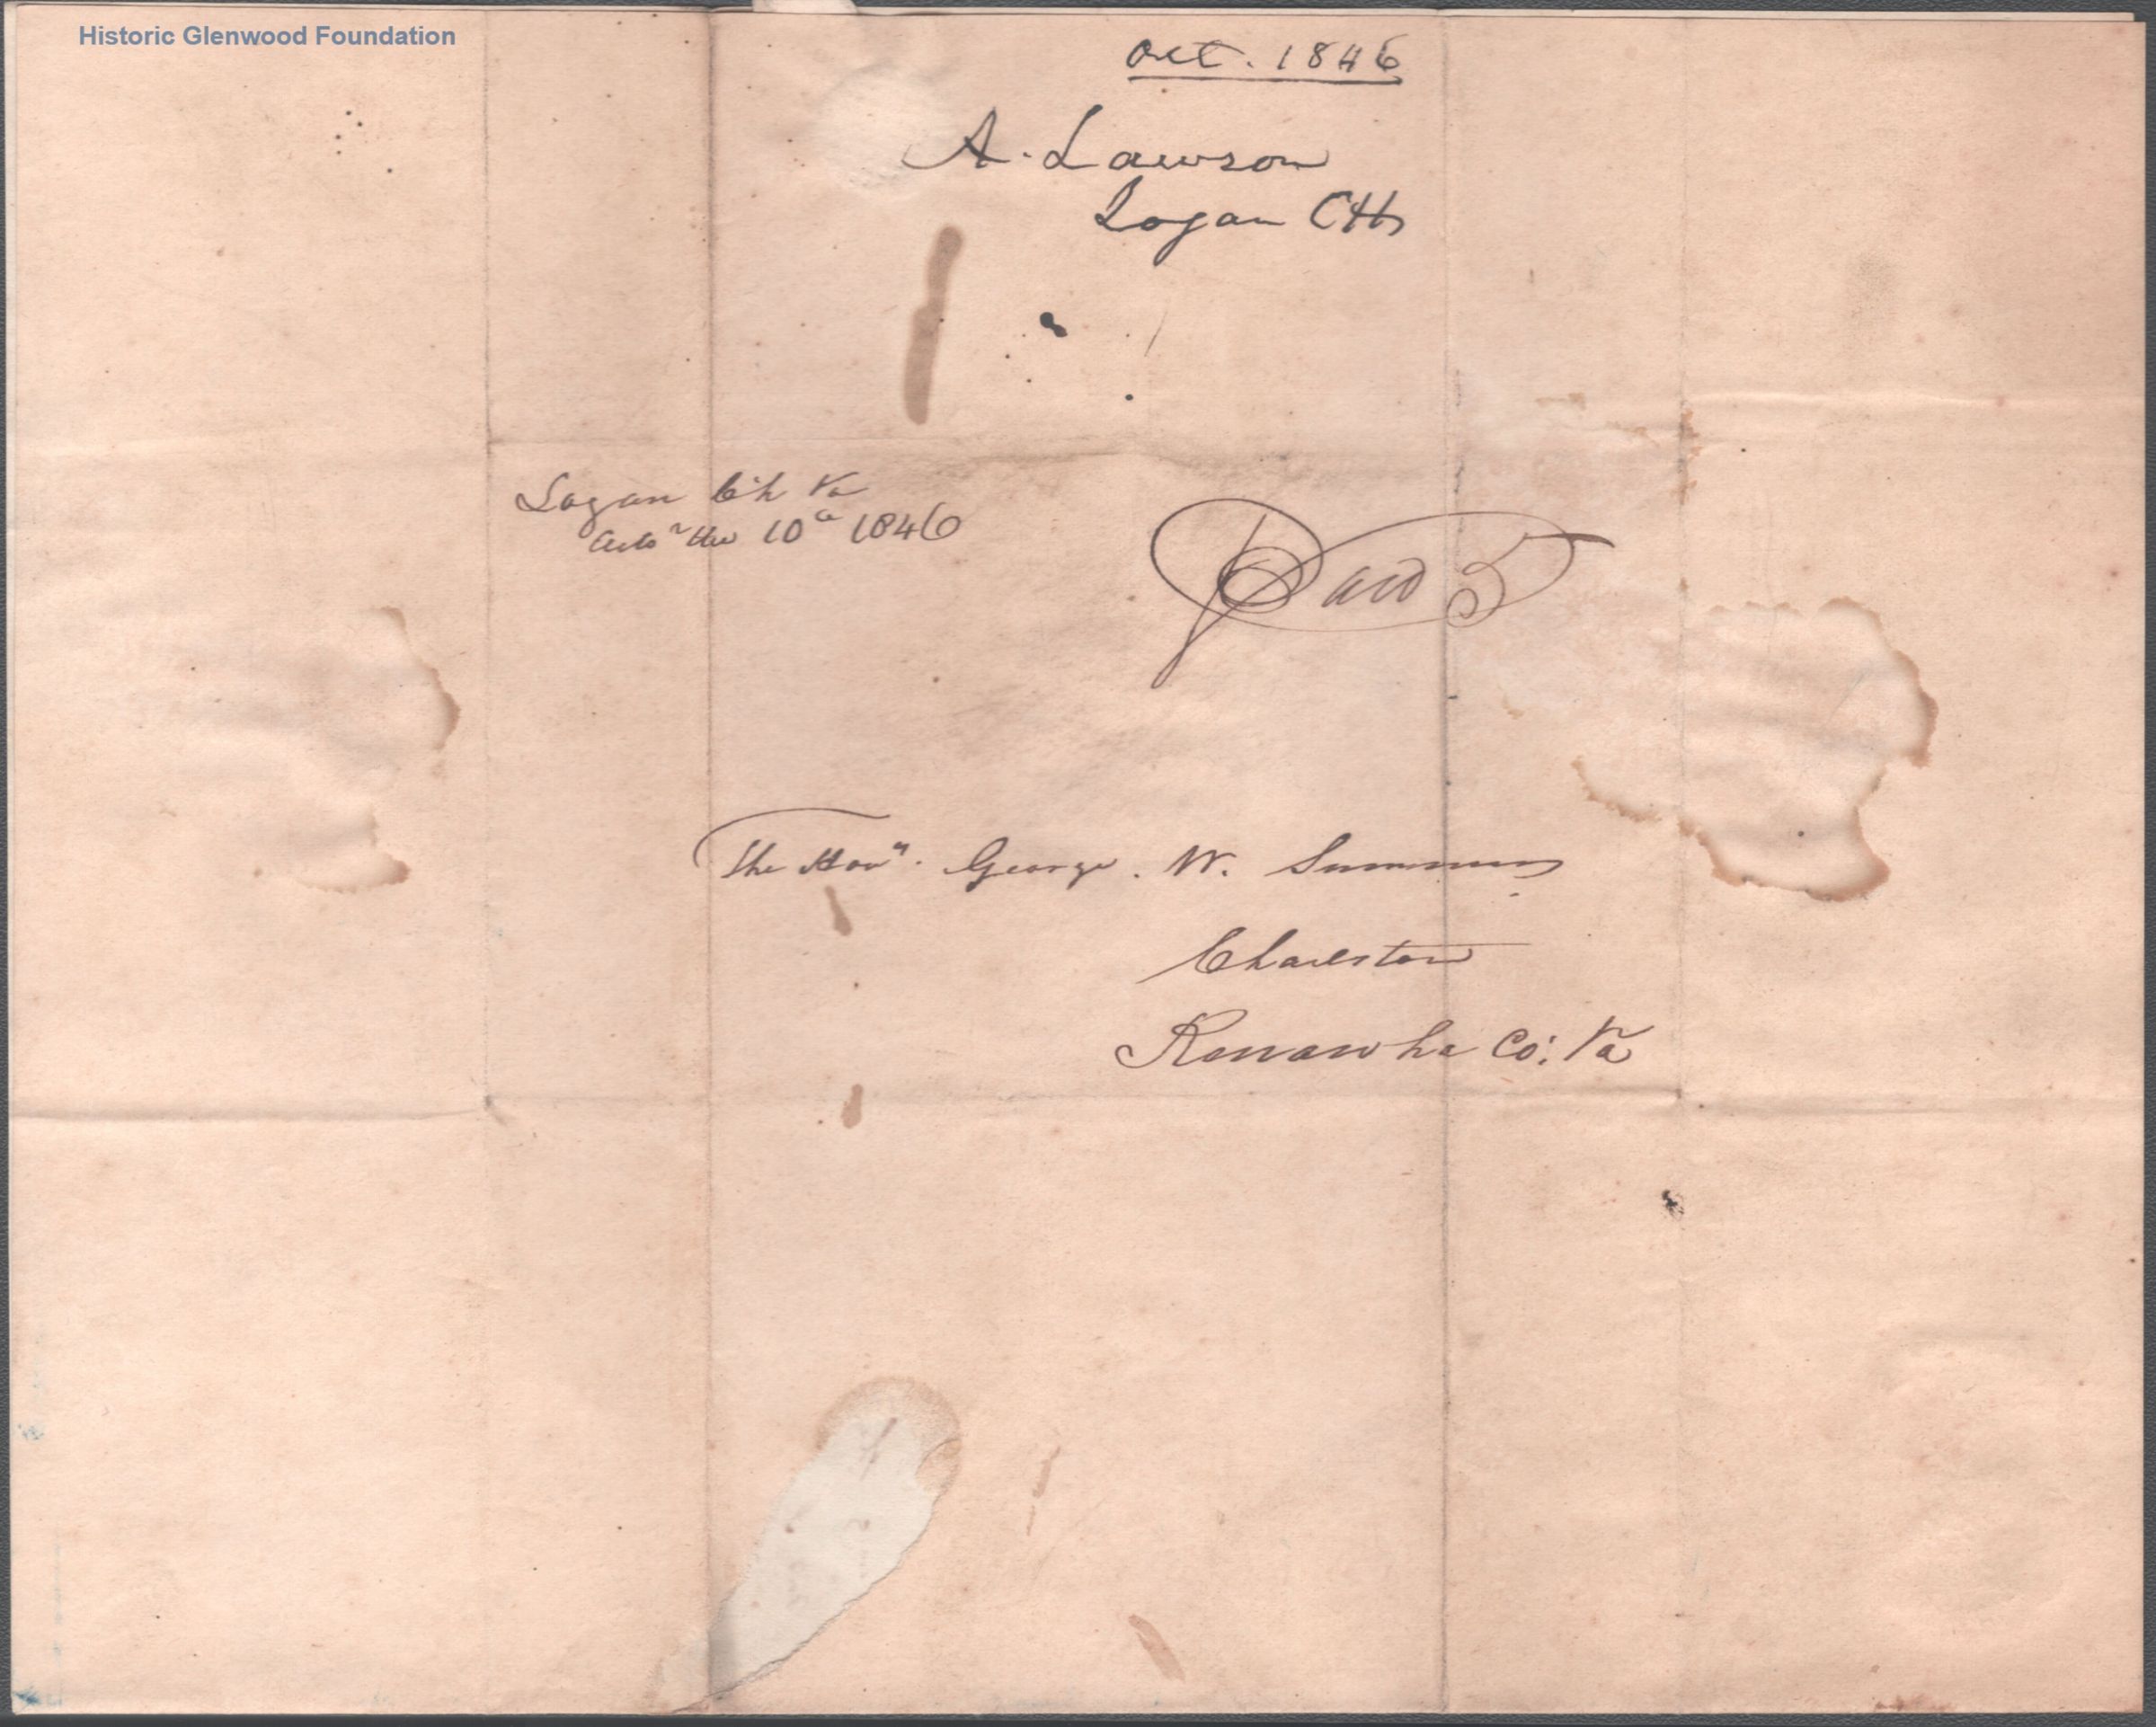 Historic Glenwood Foundation
Oct. 1846
A. Lawson
Logan CH
Logan C.h Va
the 10th 1846
Paid 5
The Honl. George. W. Summers
Charleston
Kanawha Co: Va